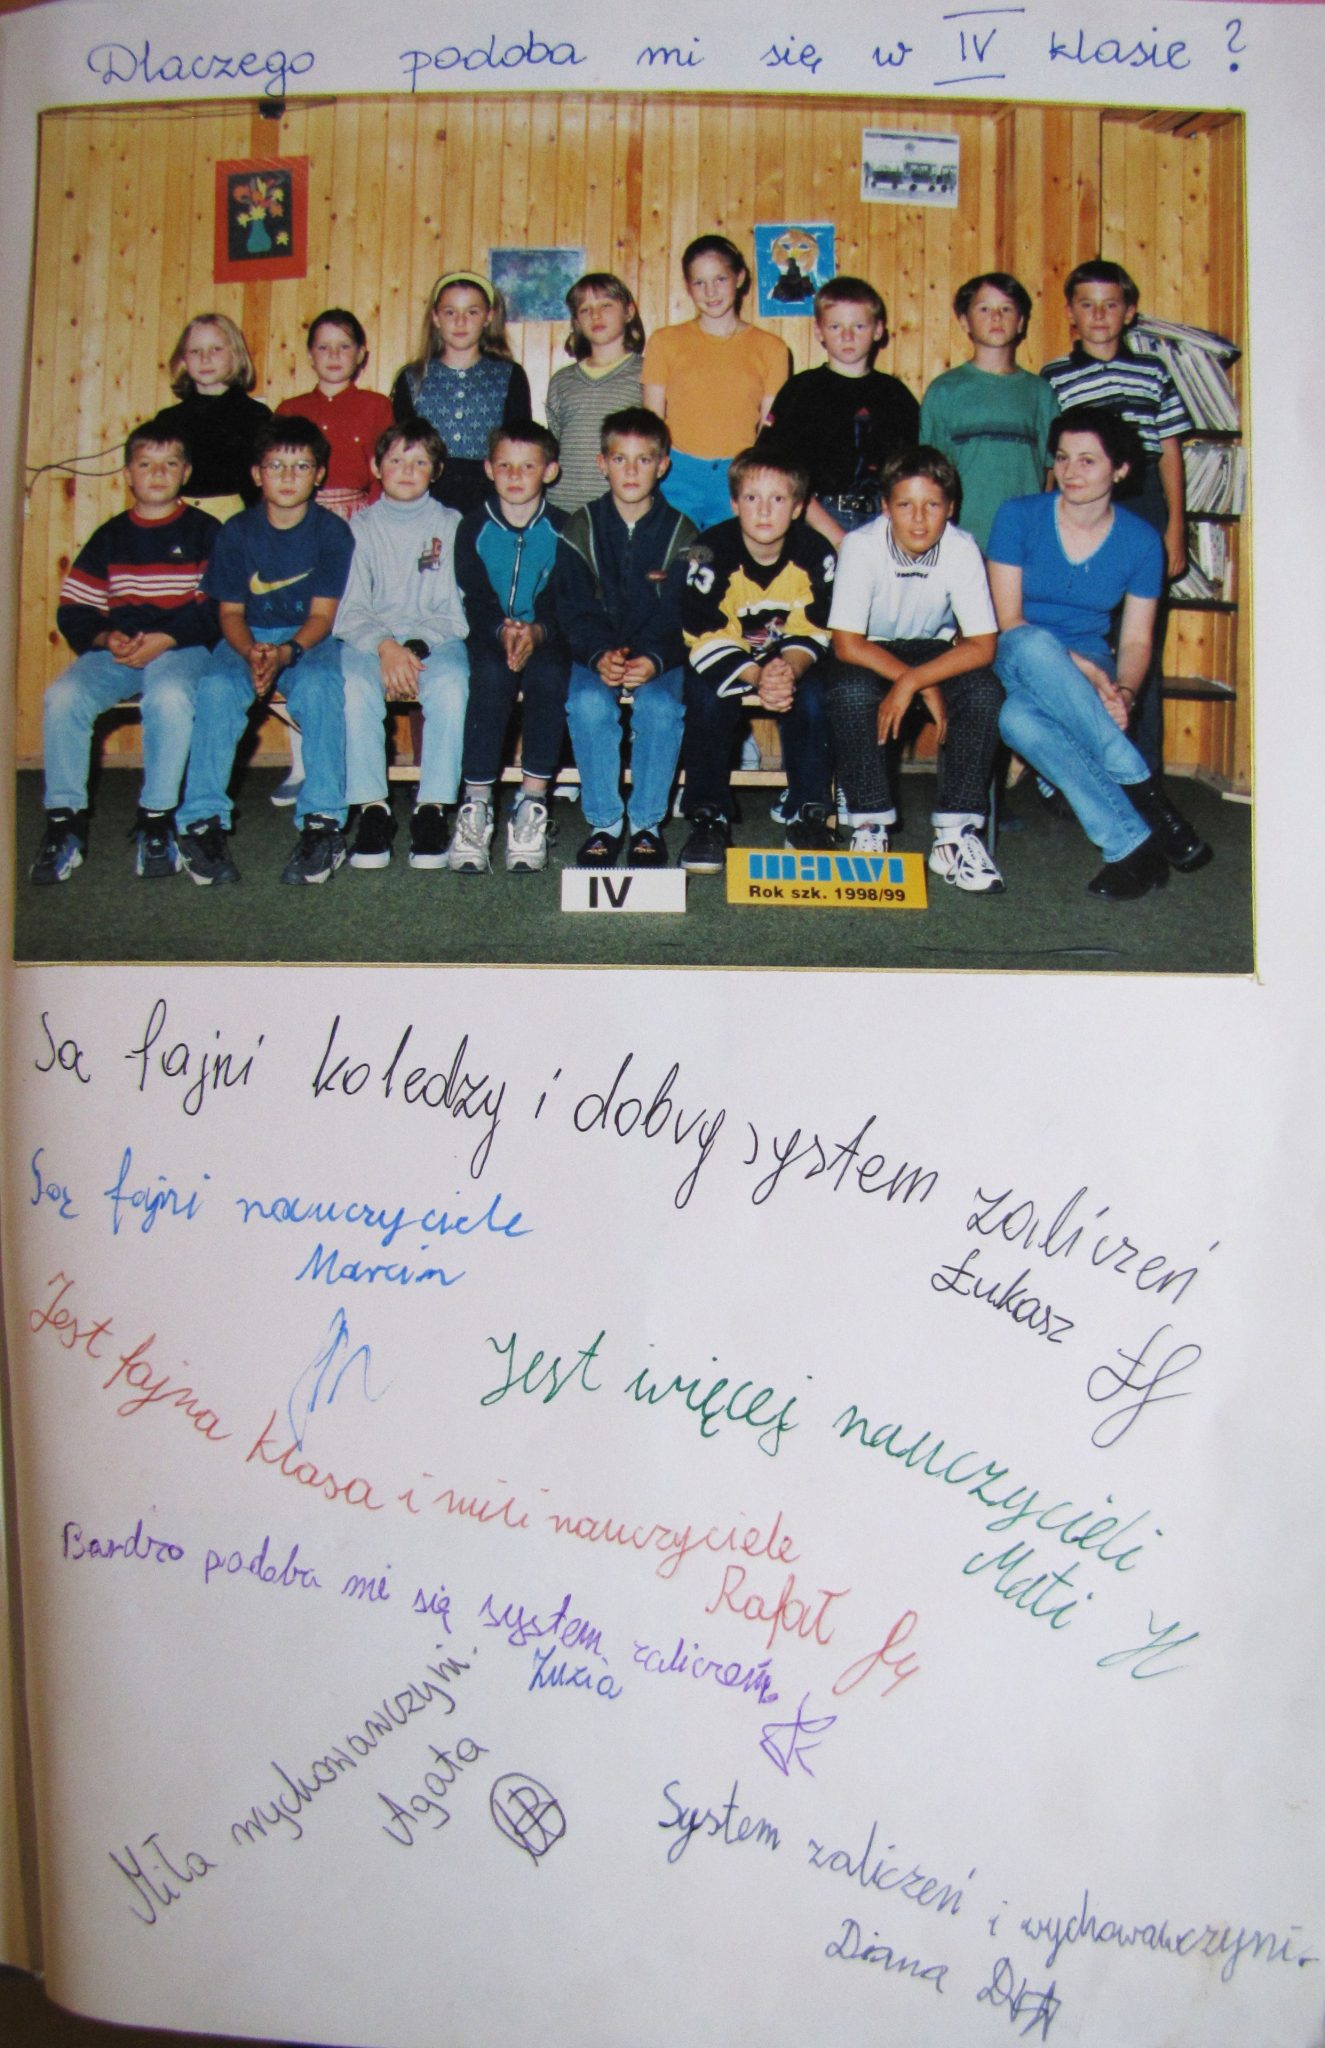 Dlaczego podoba mi się w IV klasie?
23
2
AIR
IV
MAWI
Rok szk. 1998/99
Są fajni koledzy i dobry system zaliczeń
Łukasz
Są fajni nauczyciele
Marcin
Jest więcej nauczycieli
Mati
Jest fajna klasa i mili nauczyciele
Rafał
Bardzo podoba mi się system zaliczeń.
Zuzia
Miła wychowawczyni.
Agata
System zaliczeń i wychowawczyni.
Diana